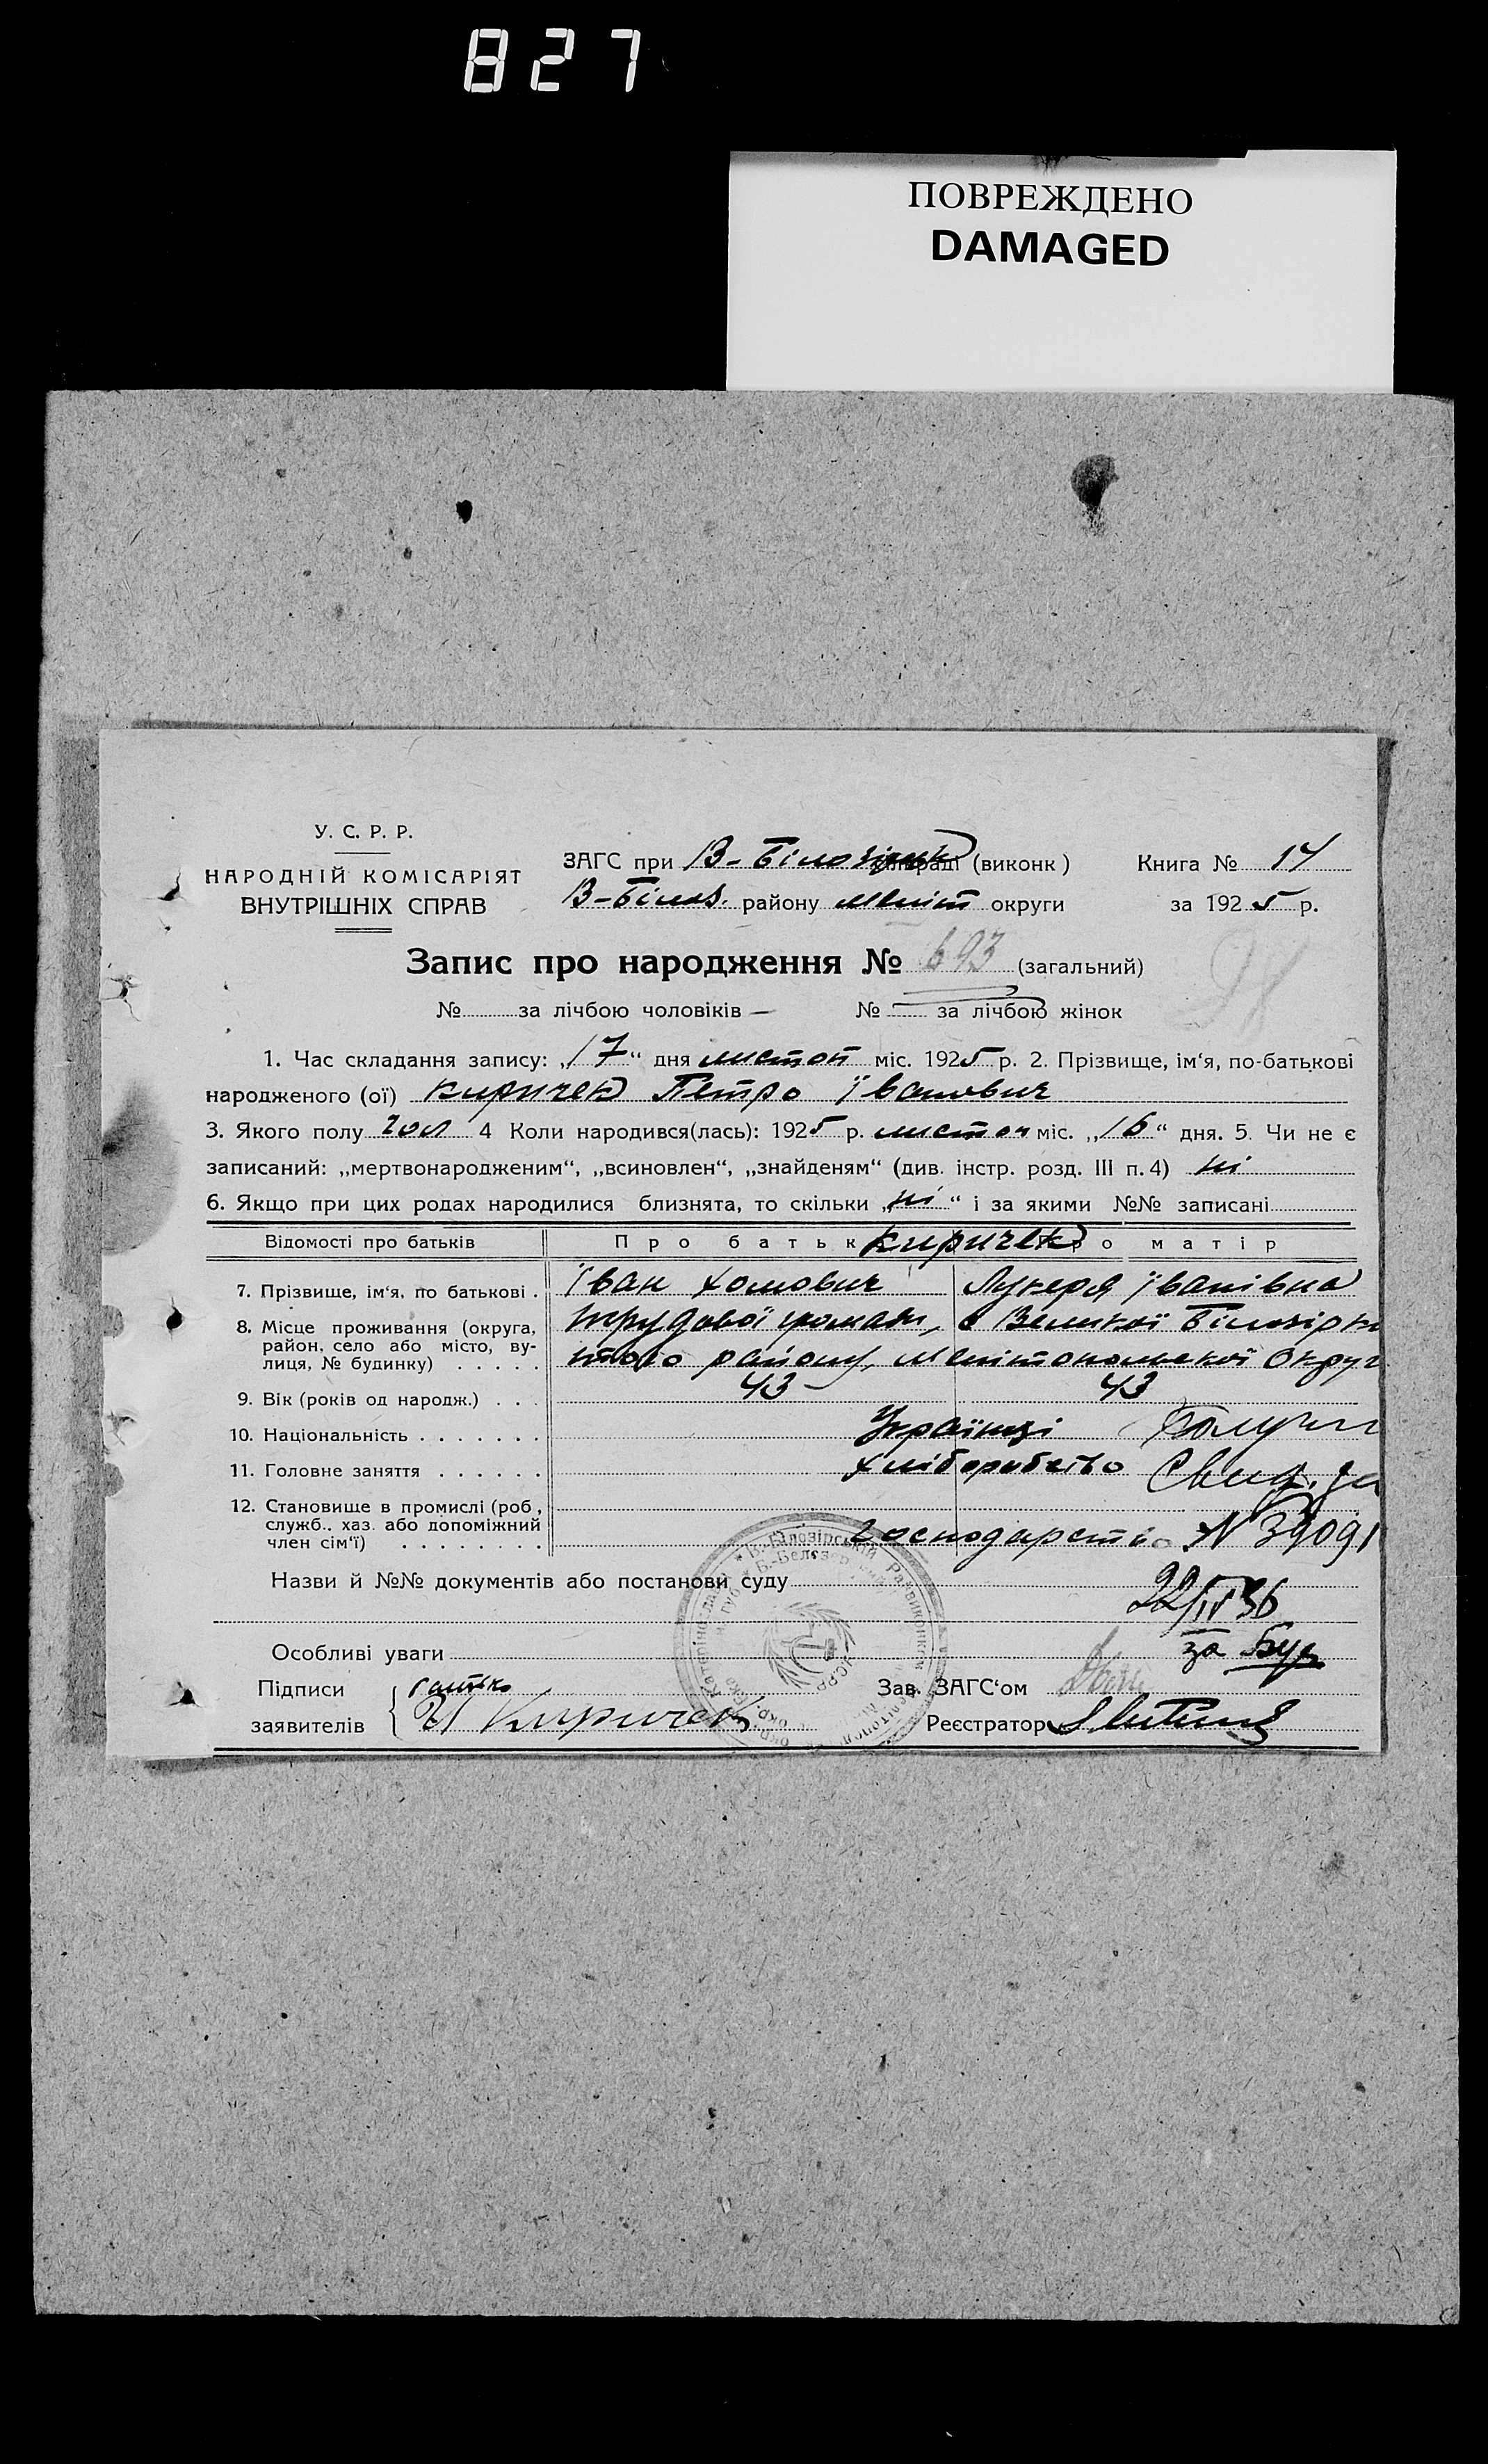 827
ПОВРЕЖДЕНО
DAMAGED
У. С. Р. Р.
НАРОДНІЙ КОМІСАРІЯТ
ВНУТРІШНІХ СПРАВ
ЗАГС при В-Білозірськ (виконк) Книга № 14
В-Білоз. району Меліт округи за 1925 р.
Запис про народження № 693 (загальний)
№ за лічбою чоловіків — № за лічбою жінок
1. Час складання запису: „17“ дня листоп міс. 1925 р. 2. Прізвище, ім‘я, по-батькові
народженого (ої) Киричек Петро Іванович
3. Якого полу чол 4 Коли народився(лась): 1925 р. листоп міс. „16“ дня. 5. Чи не є
записаний: „мертвонародженим“, „всиновлен“, „знайденям“ (див. інстр. розд. III п. 4) ні
6. Якщо при цих родах народилися близнята, то скільки „ні“ і за якими №№ записані
Відомості про батьків Про батьк Киричек ро матір
7. Прізвище, ім‘я, по батькові . Іван Хомович Лукеря Іванівна
8. Місце проживання (округа, район, село або місто, вулиця, № будинку) . . . . . Трудової громади, с Великої Білозірки
того району, Мелітопольської Округ
9. Вік (років од народж.) . . . 43 43
10. Національність . . . . . . . Українці
11. Головне заняття . . . . . . Хліборобство Свид.
12. Становище в промислі (роб, служб.. хаз. або допоміжний член сім‘ї) . . . . . . . . . господарств N 39091
Назви й №№ документів або постанови суду
22/IV 36
Особливі уваги за
Підписи заявителів батько
И Киричек
Зав. ЗАГС‘ом
Реєстратор